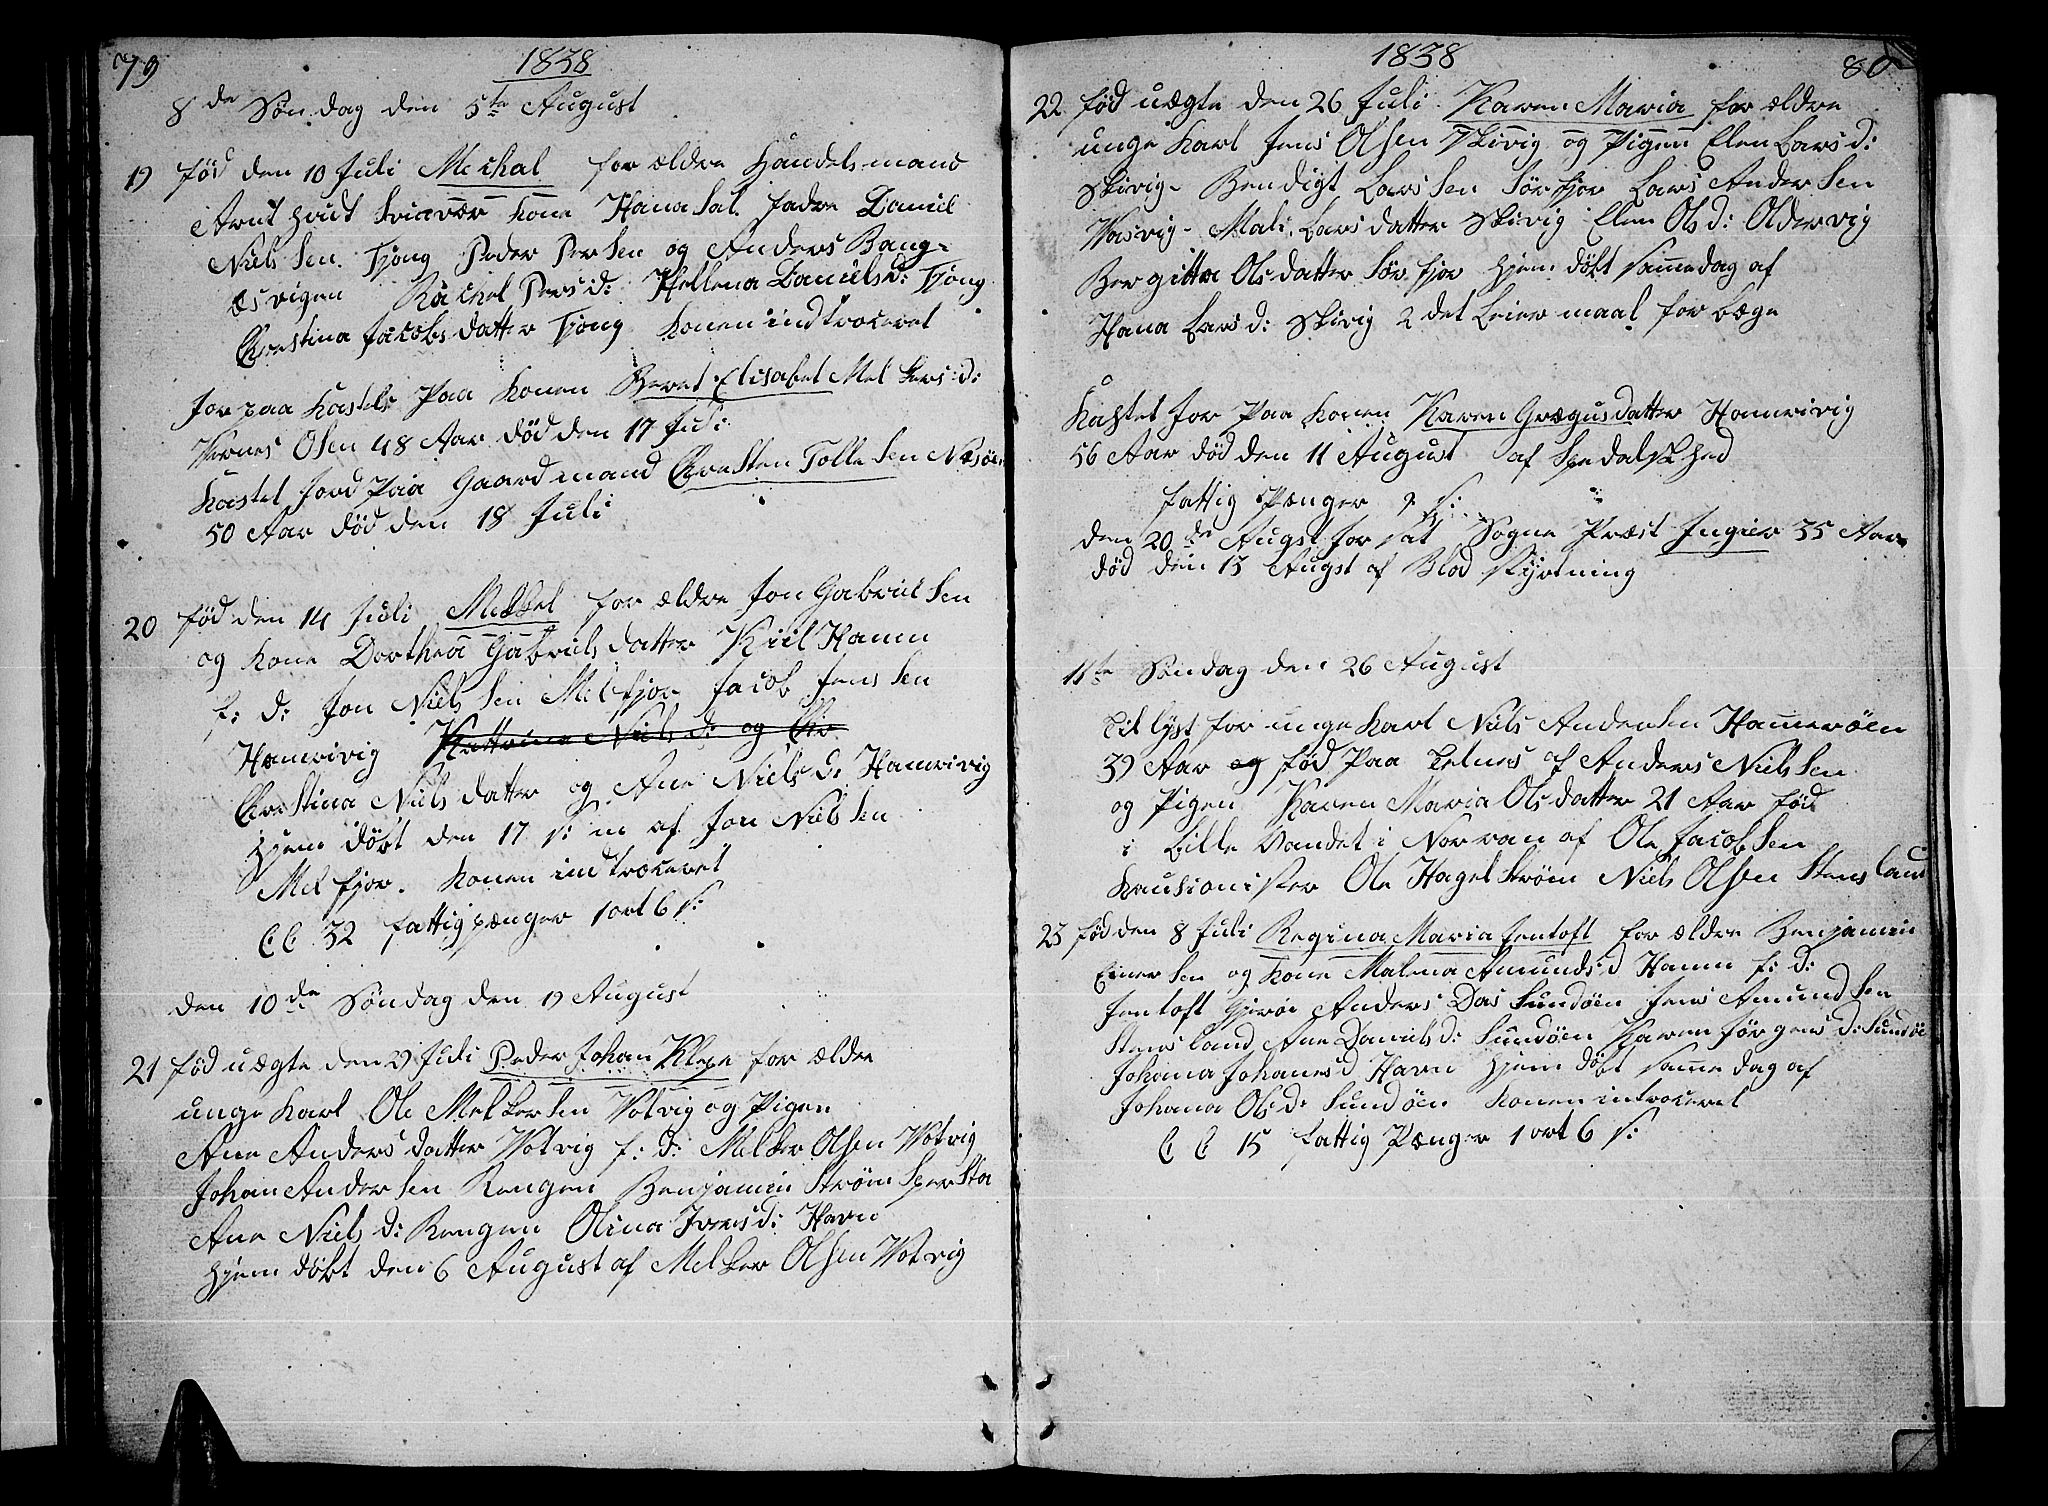 79
1838
8de Søndag den 5te August
19 fød den 10 Juli Mechal forældre Handelsmand
Arnt Hvidt Svinvær kone Hana Sal. fadre Daniel
Nielssen Tjong Peder Persen og Anders Bang-
æsvigen Rachel Persd: Hellena Danielsd: Tjong
Crestina Jacobsdatter Tjong konen indtroceret
Jorpaa kastels Paa konen Beret Elisabet Melkersd:
Værnes Olsen 48 Aar død den 17 Juli
kastel Jord Paa Gaardmand Cresten Tollesen Næsøen
50 Aar død den 18 Juli
20 fød den 14 Juli Mekkel forældre Jon Gabrielsen
og kone Dorthea Gabrielsdatter Kiil Hamn
f: d: Jon Nielssen Melfjor Jacob Jenssen
Hamnvivig Kattrine Nielsd: og Cir
Crestina Nielsdatter og Ane Nielsd: Hamnvivig
Hjemdøbt den 17 s: m af Jon Nielssen
Melfjor. konen indtroceret
C C 32 fattigpænger 1 ort 6 s:
den 10de Søndag den 19 August
21 fød uægte den 29 Juli Peder Johan Klepe forældre
unge karl Ole Melkersen Votvig og Pigen
Ane Andersdatter Votvig f: d: Melker Olsen Votvig
Johan Andersen Rengen Benjamin Strøm Spersta
Ane Nielsd: Rengen Olina Iversd: Havn
Hjemdøbt den 6 August af Melker Olsen Votvig
1838
80
22 fød uægte den 26 Juli Karen Maria forældre
unge karl Jens Olsen Skivig og Pigen Elen Larsd:
Skivig- Bendigt Larssen Sørfjor Lars Andersen
Vasvig- Mali Larsdatter Skivig Elen Olsd: Oldervig
Bergitta Olsdatter Sørfjor Hjemdøbt samedag af
Hana Larsd: Skivig 2det Leiermaal for bæge
kastet Jor Paa konen Karen Grægusdatter Hamnvivig
56 Aar død den 11 August af Spedalskhed
fattig Pænger 2 s:
den 20de Augst Jorsat Sogne Præst Ingier 35 Aar
død den 13 Augst af Blod styrtning
11te Søndag den 26 August
Tillyst for unge karl Niels Andersen Hamerøen
39 Aar og fød Paa Telnes af Anders Nielssen
og Pigen Karen Maria Olsdatter 21 Aar fød
i Lille Vandet i Norvan af Ole Jacobsen
kausionister Ole Hagelstrøm Niels Olsen Stensland
23 fød den 8 Juli Regina Maria Jentoft forældre Benjamin
Einersen og kone Malena Amundsd Hamn f: d:
Jentoft Gjerøi Anders Das Sundøen Jens Amundsen
Stensland Ane Danielsd: Sundøen Karen Jørgensd: Sundøe
Johana Johanesd Havn Hjemdøbt samedag af
Johana Olsd: Sundøen konen introceret
C C 15 fattig Pænger 1 ort 6 s: